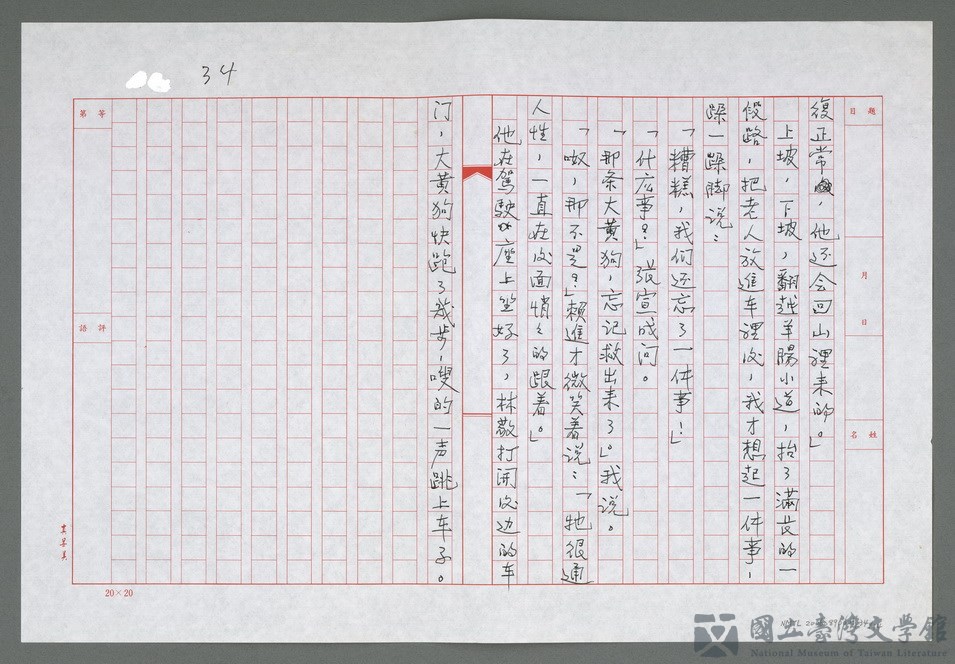 34
題目
月
日
姓名
復正常,他还会回山裡来的。」
上坡,下坡,翻越羊腸小道,抬了滿長的一
段路,把老人放進车裡后,我才想起一件事,
跺一跺脚说:
「糟糕,我们还忘了一件事!」
「什広事?」張宣成问。
「那条大黃狗,忘记救出来了。」我说。
「呶,那不是?」賴進才微笑着说:「牠很通
人性,一直在后面悄々的跟着。」
他在駕駛座上坐好了,林敬打開后边的车
门,大黃狗快跑了幾步,嗖的一声跳上车子。
等第
評語
20×20
國立臺灣文學館
National Museum of Taiwan Literature